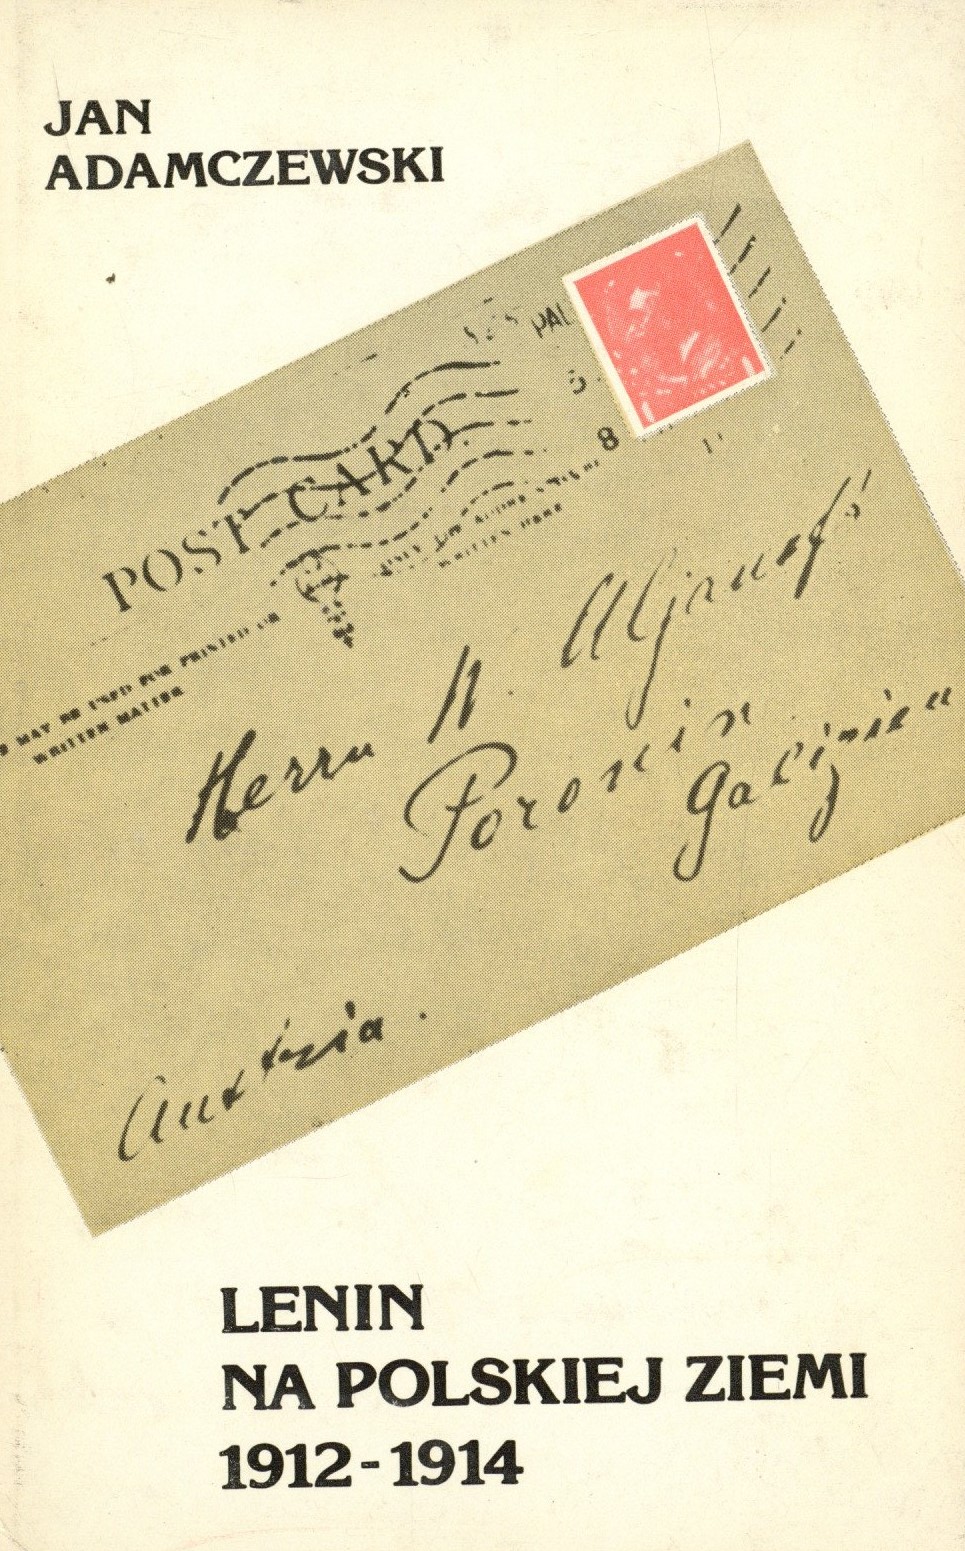 JAN
ADAMCZEWSKI
PAL
5
8
POST CARD
MAY BE USED FOR PRINTED OR
WRITTEN MATTER
WRITTEN HERE
Herrn W. Uljanoff
Poronin
Galizien
Austria.
LENIN
NA POLSKIEJ ZIEMI
1912-1914